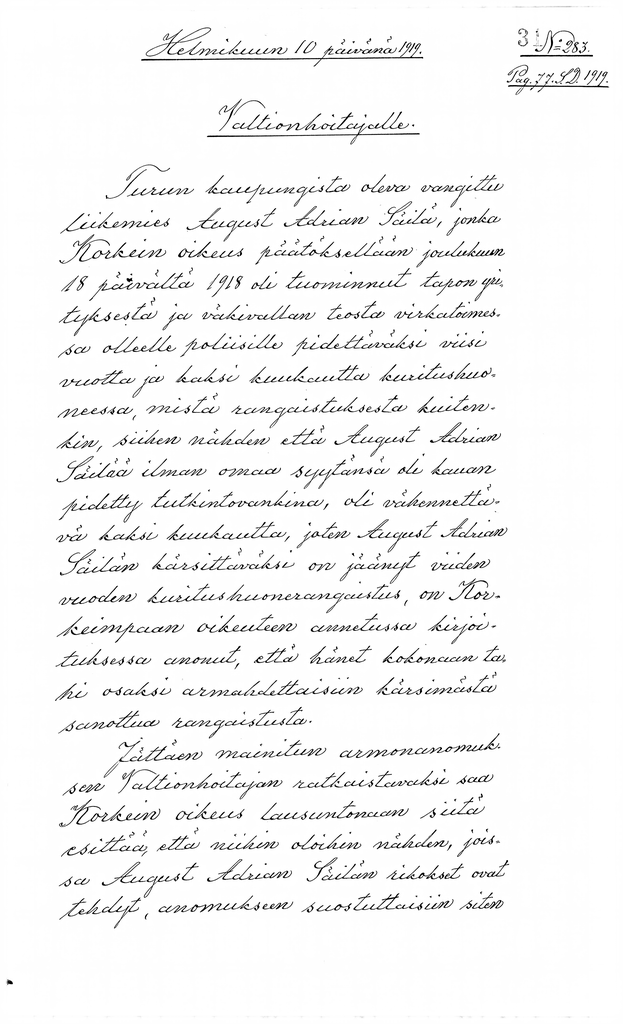 Helmikuun 10 päivänä 1919.
31 No 283.
Pag. 77. S.D. 1919.
Valtionhoitajalle.
Turun kaupungista oleva vangittu
liikemies August Adrian Säilä, jonka
Korkein oikeus päätöksellään joulukuun
18 päivältä 1918 oli tuominnut tapon yri-
tyksestä ja väkivallan teosta virkatoimes-
sa olleelle poliisille pidettäväksi viisi
vuotta ja kaksi kuukautta kuritushuo-
neessa, mistä rangaistuksesta kuiten-
kin, siihen nähden että August Adrian
Säilää ilman omaa syytänsä oli kauan
pidetty tutkintovankina, oli vähennettä-
vä kaksi kuukautta, joten August Adrian
Säilän kärsittäväksi on jäänyt viiden
vuoden kuritushuonerangaistus, on Kor-
keimpaan oikeuteen annetussa kirjoi-
tuksessa anonut, että hänet kokonaan ta-
hi osaksi armahdettaisiin kärsimästä
sanottua rangaistusta.
Jättäen mainitun armonanomuk-
sen Valtionhoitajan ratkaistavaksi saa
Korkein oikeus lausuntonaan siitä
esittää, että niihin oloihin nähden, jois-
sa August Adrian Säilän rikokset ovat
tehdyt, anomukseen suostuttaisiin siten